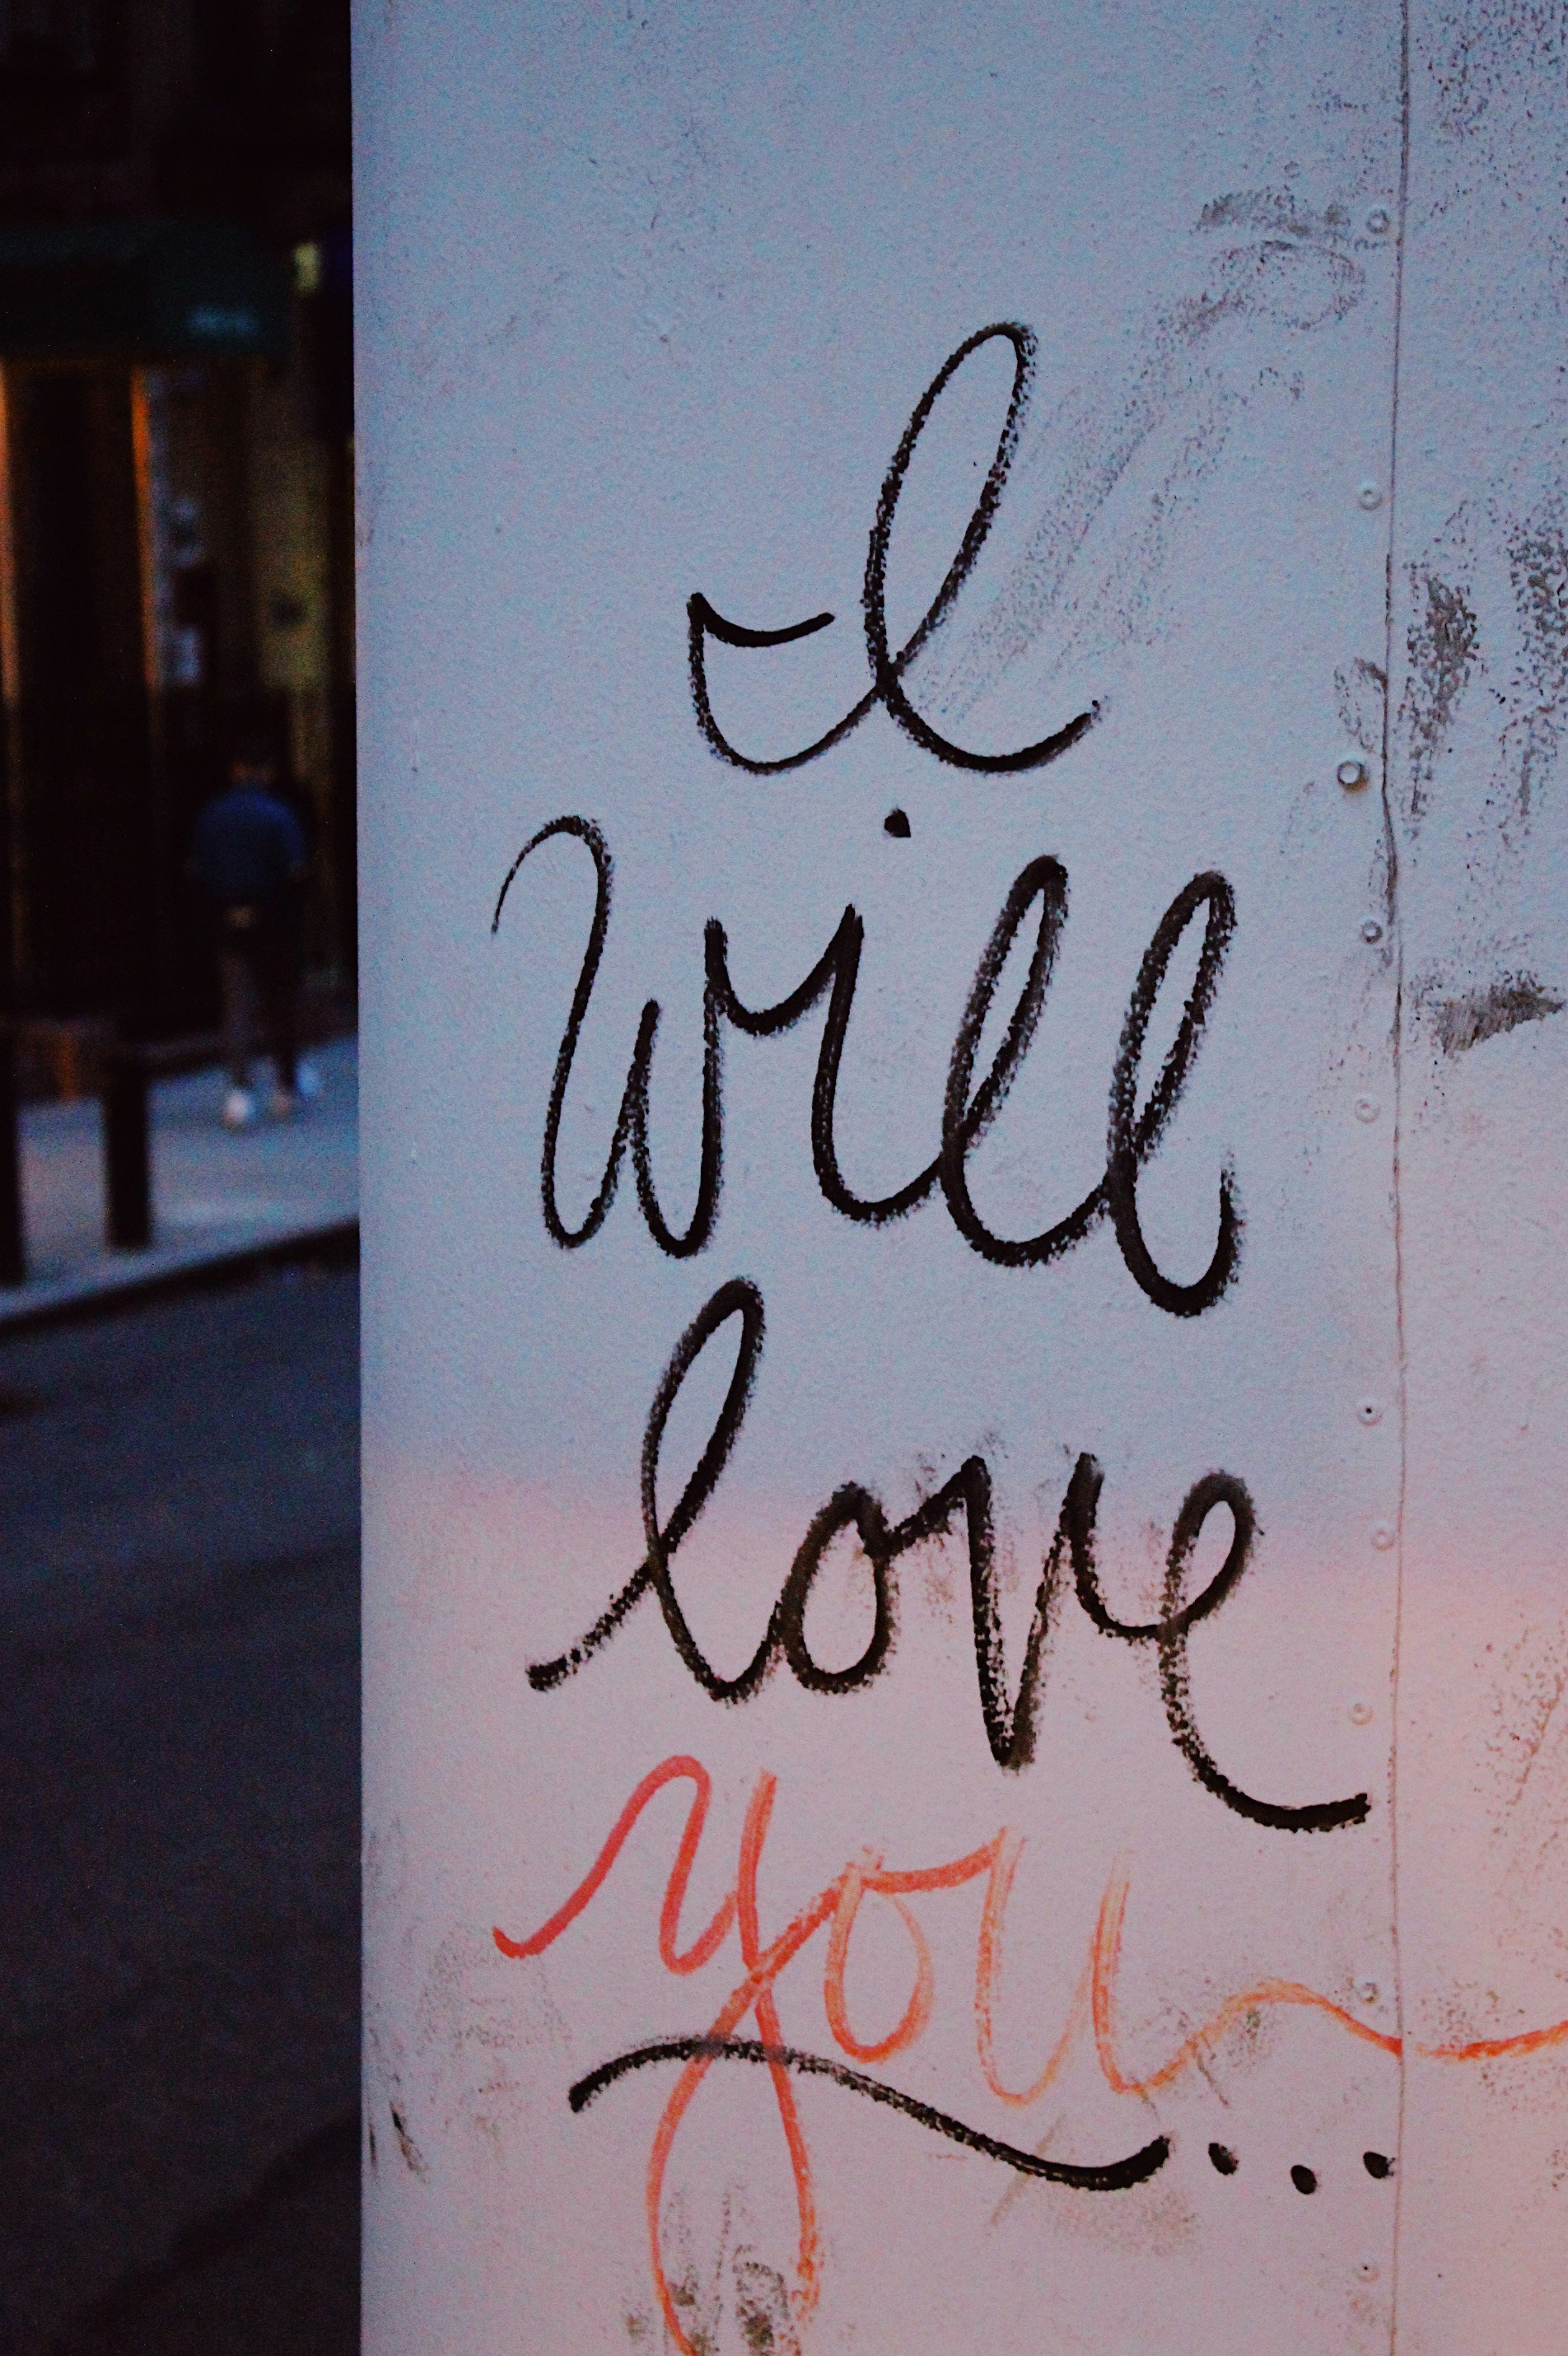 I
will
love
you
...